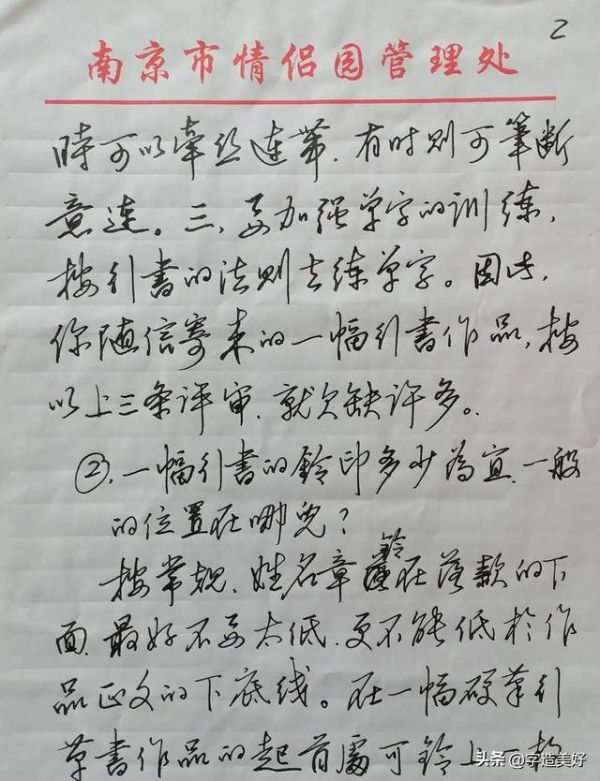 2
南京市情侣园管理处
時可以牵丝连带.有时则可筆断
意连。三、要加强单字的训练,
按行書的法则去练单字。因此,
你随信寄来的一幅行書作品,按
以上三条评审.就欠缺许多。
②.一幅行書的鈐印多少為宜.一般
的位置在哪兒?
按常规.姓名章鈐在落款的下
面.最好不要太低.更不能低於作
品正文的下底线。在一幅硬筆行
草書作品的起首處可鈐上一款
头条@字造美好